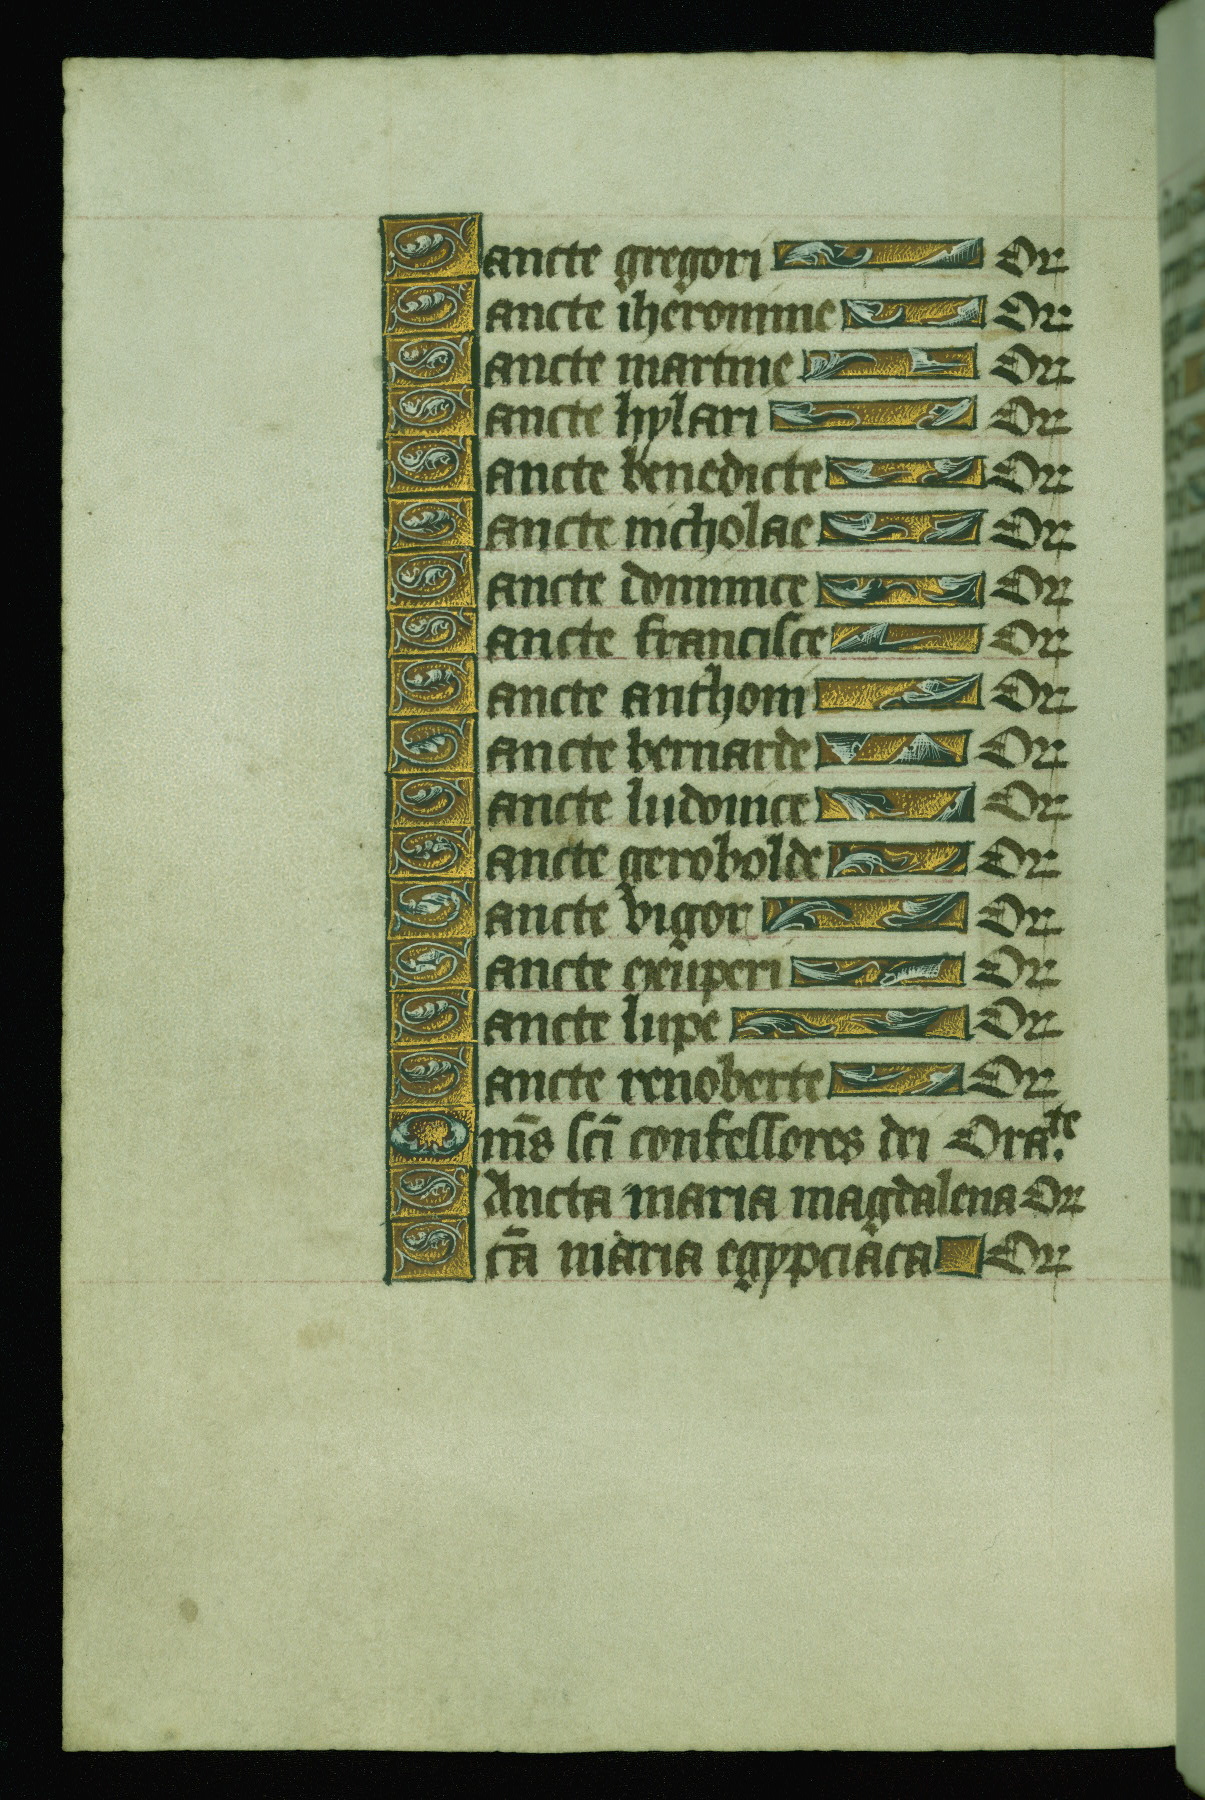 Sancte gregori Or
Sancte iheronime Or
Sancte martine Or
Sancte hylari Or
Sancte benedicte Or
Sancte nicholae Or
Sancte dominice Or
Sancte francisce Or
Sancte anthoni Or
Sancte bernarde Or
Sancte ludouice Or
Sancte gerobolde Or
Sancte vigor Or
Sancte exuperi Or
Sancte lupe Or
Sancte renoberte Or
Om̄s sc̄i confessores dei Orate.
SAncta maria magdalena Or
Sc̄a maria egypciaca Or